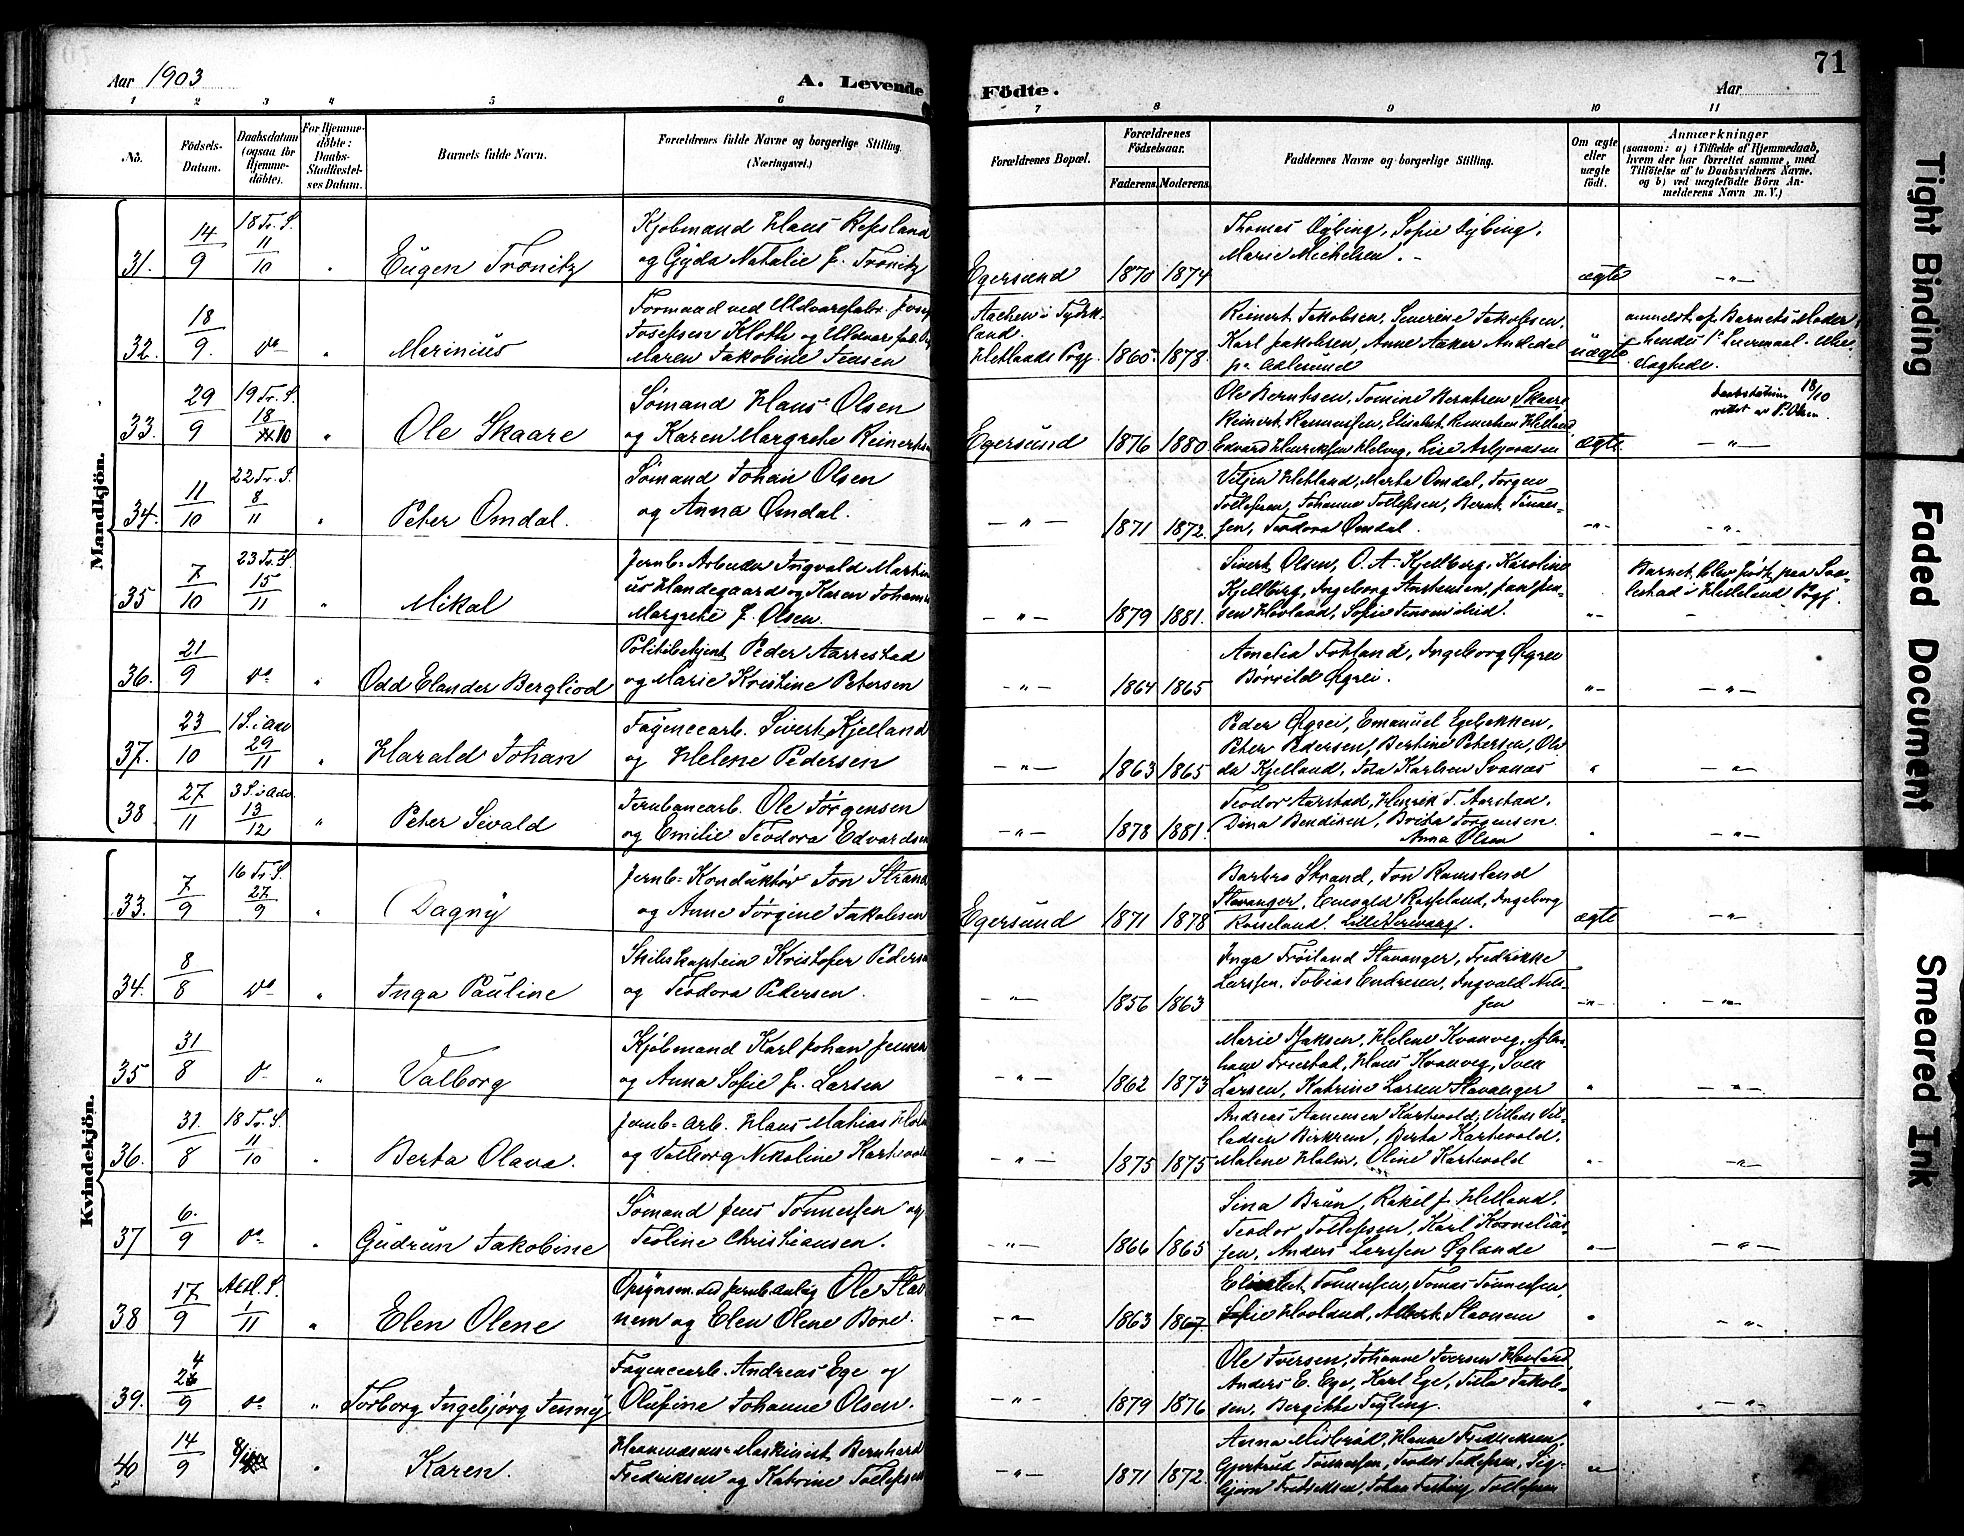 Aar 1903
A. Levende Födte.
Aar
71
1 2 3 4 5 6 7 8 9 10 11
No.
Födsels-Datum.
Daabsdatum (ogsaa for Hjemme-döbte).
For Hjemme-döbte: Daabs-Stadfæstel-ses Datum.
Barnets fulde Navn.
Forældrenes fulde Navne og borgerlige Stilling. (Næringsvei.)
Forældrenes Bopæl.
Forældrenes Födselsaar.
Faderens. Moderens.
Faddernes Navne og borgerlige Stilling.
Om ægte eller uægte födt.
Anmærkninger
(saasom: a) i Tilfælde af Hjemmedaab, hvem der har forrettet samme, med Tilföielse af to Daabsvidners Navne. og b) ved uægtefödte Börn An-melderens Navn m. V.)
Mandkjön.
31. 14/9 18 Tr. S. 11/10 " Eugen Tronitz
Kjøbmand Hans Repsland
og Gyda Natalie f. Tronitz
Egersund 1870 1874
Thomas Dybing, Sofie Dybing,
Marie Michelsen. -
ægte - " -
32. 18/9. do " Marinius
Formand ved Uldvarefabr. Josef
Josefsen Kloth og Uldvarefab.
Maren Jakobine Jensen
Aachen i Tydsk-
land.
Hetlands Pgj. 1865. 1878.
Reinert Jakobsen, Severine Jakobsen,
Karl Jakobsen, Anne Aaker Andedal
uægte
anmeldt af Barnets Moder,
hendes 1ste Leiermaal.
33. 29/9 19 Tr. S. 18/10 " Ole Skaare
Sømand Hans Olsen
og Karen Margrethe Reinertsen
Egersund 1876 1880
Ole Berntsen, Tomine Berntsen Skaare,
Reinert Rasmussen, Elisabet Reinertsen Hetland,
Edvard Henriksen Helvig, Lise Asbjørnsen
ægte
Daabsdatum 18/10
rettet av P. Olsen.
- " -
34. 11/10 22 Tr. S. 8/11 " Peter Omdal.
Sømand Johan Olsen
og Anna Omdal.
- " - 1871 1872.
Hetland, Marta Omdal, Jørgen
Tollefsen, Johanne Tollefsen, Bernt Tønnes-
sen, Teodora Omdal.
- " - - " -
35 7/10 23 Tr. S. 15/11 " Mikal
Jernb.-Arbeider Ingvald Martin-
ius Handegaard og Karen Johanne
Margrethe f. Olsen.
- " - 1879 1881.
Sivert Olsen, O. A. Kjellberg, Karoline
Kjellberg, Ingeborg Anstensen, Jan Jen-
sen Hovland, Sofie Jensen ibid.
- " -
Barnet blev født paa Sva-
lestad i Helleland Pgj.
36. 21/9 do " Odd Elander Bergliod
Politibetjent Peder Aarrestad
og Marie Kristine Petersen
- " - 1864 1865
Amalia Fotland, Ingeborg Øgrei
Børsild Øgrei.
- " - - " -
37. 23/10 1 S. i Adv 29/11 " Harald Johan
Fayencearb. Sivert Kjelland
og Helene Pedersen
- " - 1863 1865
Peder Øgrei, Emanuel Egebakken,
Peter Pedersen, Bertine Petersen, Ol-
da Kjelland, Tola Karlsen Svanæs
" - " -
38 27/11 3 S. i Adv. 13/12 " Peter Sevald
Jernbanearb. Ole Jørgensen
og Emilie Teodora Edvardsen
- " - 1878 1881.
Teodor Aarstad, Henrik T. Aarstad,
Dina Bendiksen, Brita Jørgensen.
Anna Olsen
" - " -
Kvindekjön.
33. 7/9 16 Tr. S. 27/9 " Dagny
Jernb.-Konduktør Jon Strand
og Anne Jørgine Jakobsen
Egersund 1871 1878
Barbro Strand, Jon Ramsland
Stavanger, Enevald Rosseland, Ingeborg
Rosseland.
ægte - " -
34. 8/8 do " Inga Pauline
Skibskaptein Kristofer Pedersen
og Teodora Pedersen.
- " - 1856 1863
Inga Frøiland Stavanger, Fredrikke
Larssen, Tobias Endresen, Ingvald Nils-
sen
- " - - " -
35 31/8 do " Valborg
Kjøbmand Karl Johan Jensen
og Anna Sofie f. Larsen
- " - 1862 1873
Marie Isaksen, Helene Kvanvig, Abra-
ham Friestad, Hans Kvanvig, Sven
Larsen, Katrine Larsen Stavanger
" - " -
36. 31./8 18 Tr. S. 11/10 " Berta Olava.
Jernb.-Arb. Hans Mathias Holm
og Valborg Nikoline Kartevold
- " - 1875 1875
Andreas Aanensen Kartevold, Villads Vil-
ladsen Birkrem, Berta Kartevold,
Malene Holm, Oline Kartevold
" - " -
37 6./9 do " Gudrun Jakobine
Sømand Jens Tønnessen og
Teoline Christiansen.
- " - 1866 1865
Sina Brun, Rakel J. Hetland,
Teodor Tollefsen, Karl Kornelius-
sen, Anders Larssen Øglænde
" - - " -
38 17/9 Allh. S. 1/11 " Elen Olene
Opsynsm. ved Jernb.anlæg Ole Stav-
nem og Elen Olene Bore.
- " - 1863 1867.
Elisabet Tønnessen, Tomas Tønnessen,
Sofie Hovland, Albert Stavnem
" - " -
39. 24/9 do " Torborg Ingebjørg Jenny
Fayencearb. Andreas Ege og
Olufine Johanne Olsen.
- " - 1879 1876
Ole Iversen, Johanne Iversen Hovland,
Anders E. Ege, Karl Ege, Tilla Jakob-
sen, Bergitte Tegling.
" - " -
40 14/9 8/11 " Karen.
Havnevæsens-Maskinist Bernhard
Fredriksen og Katrine Tollefsen
- " - 1871 1872.
Anna Misbrød, Hanne Fredriksen,
Gjertrud Tønnessen, Teodor Tollefsen, Sig-
bjørn Fredriksen, Johan Tollefsen
"
Tight Binding
Faded Document
Smeared Ink